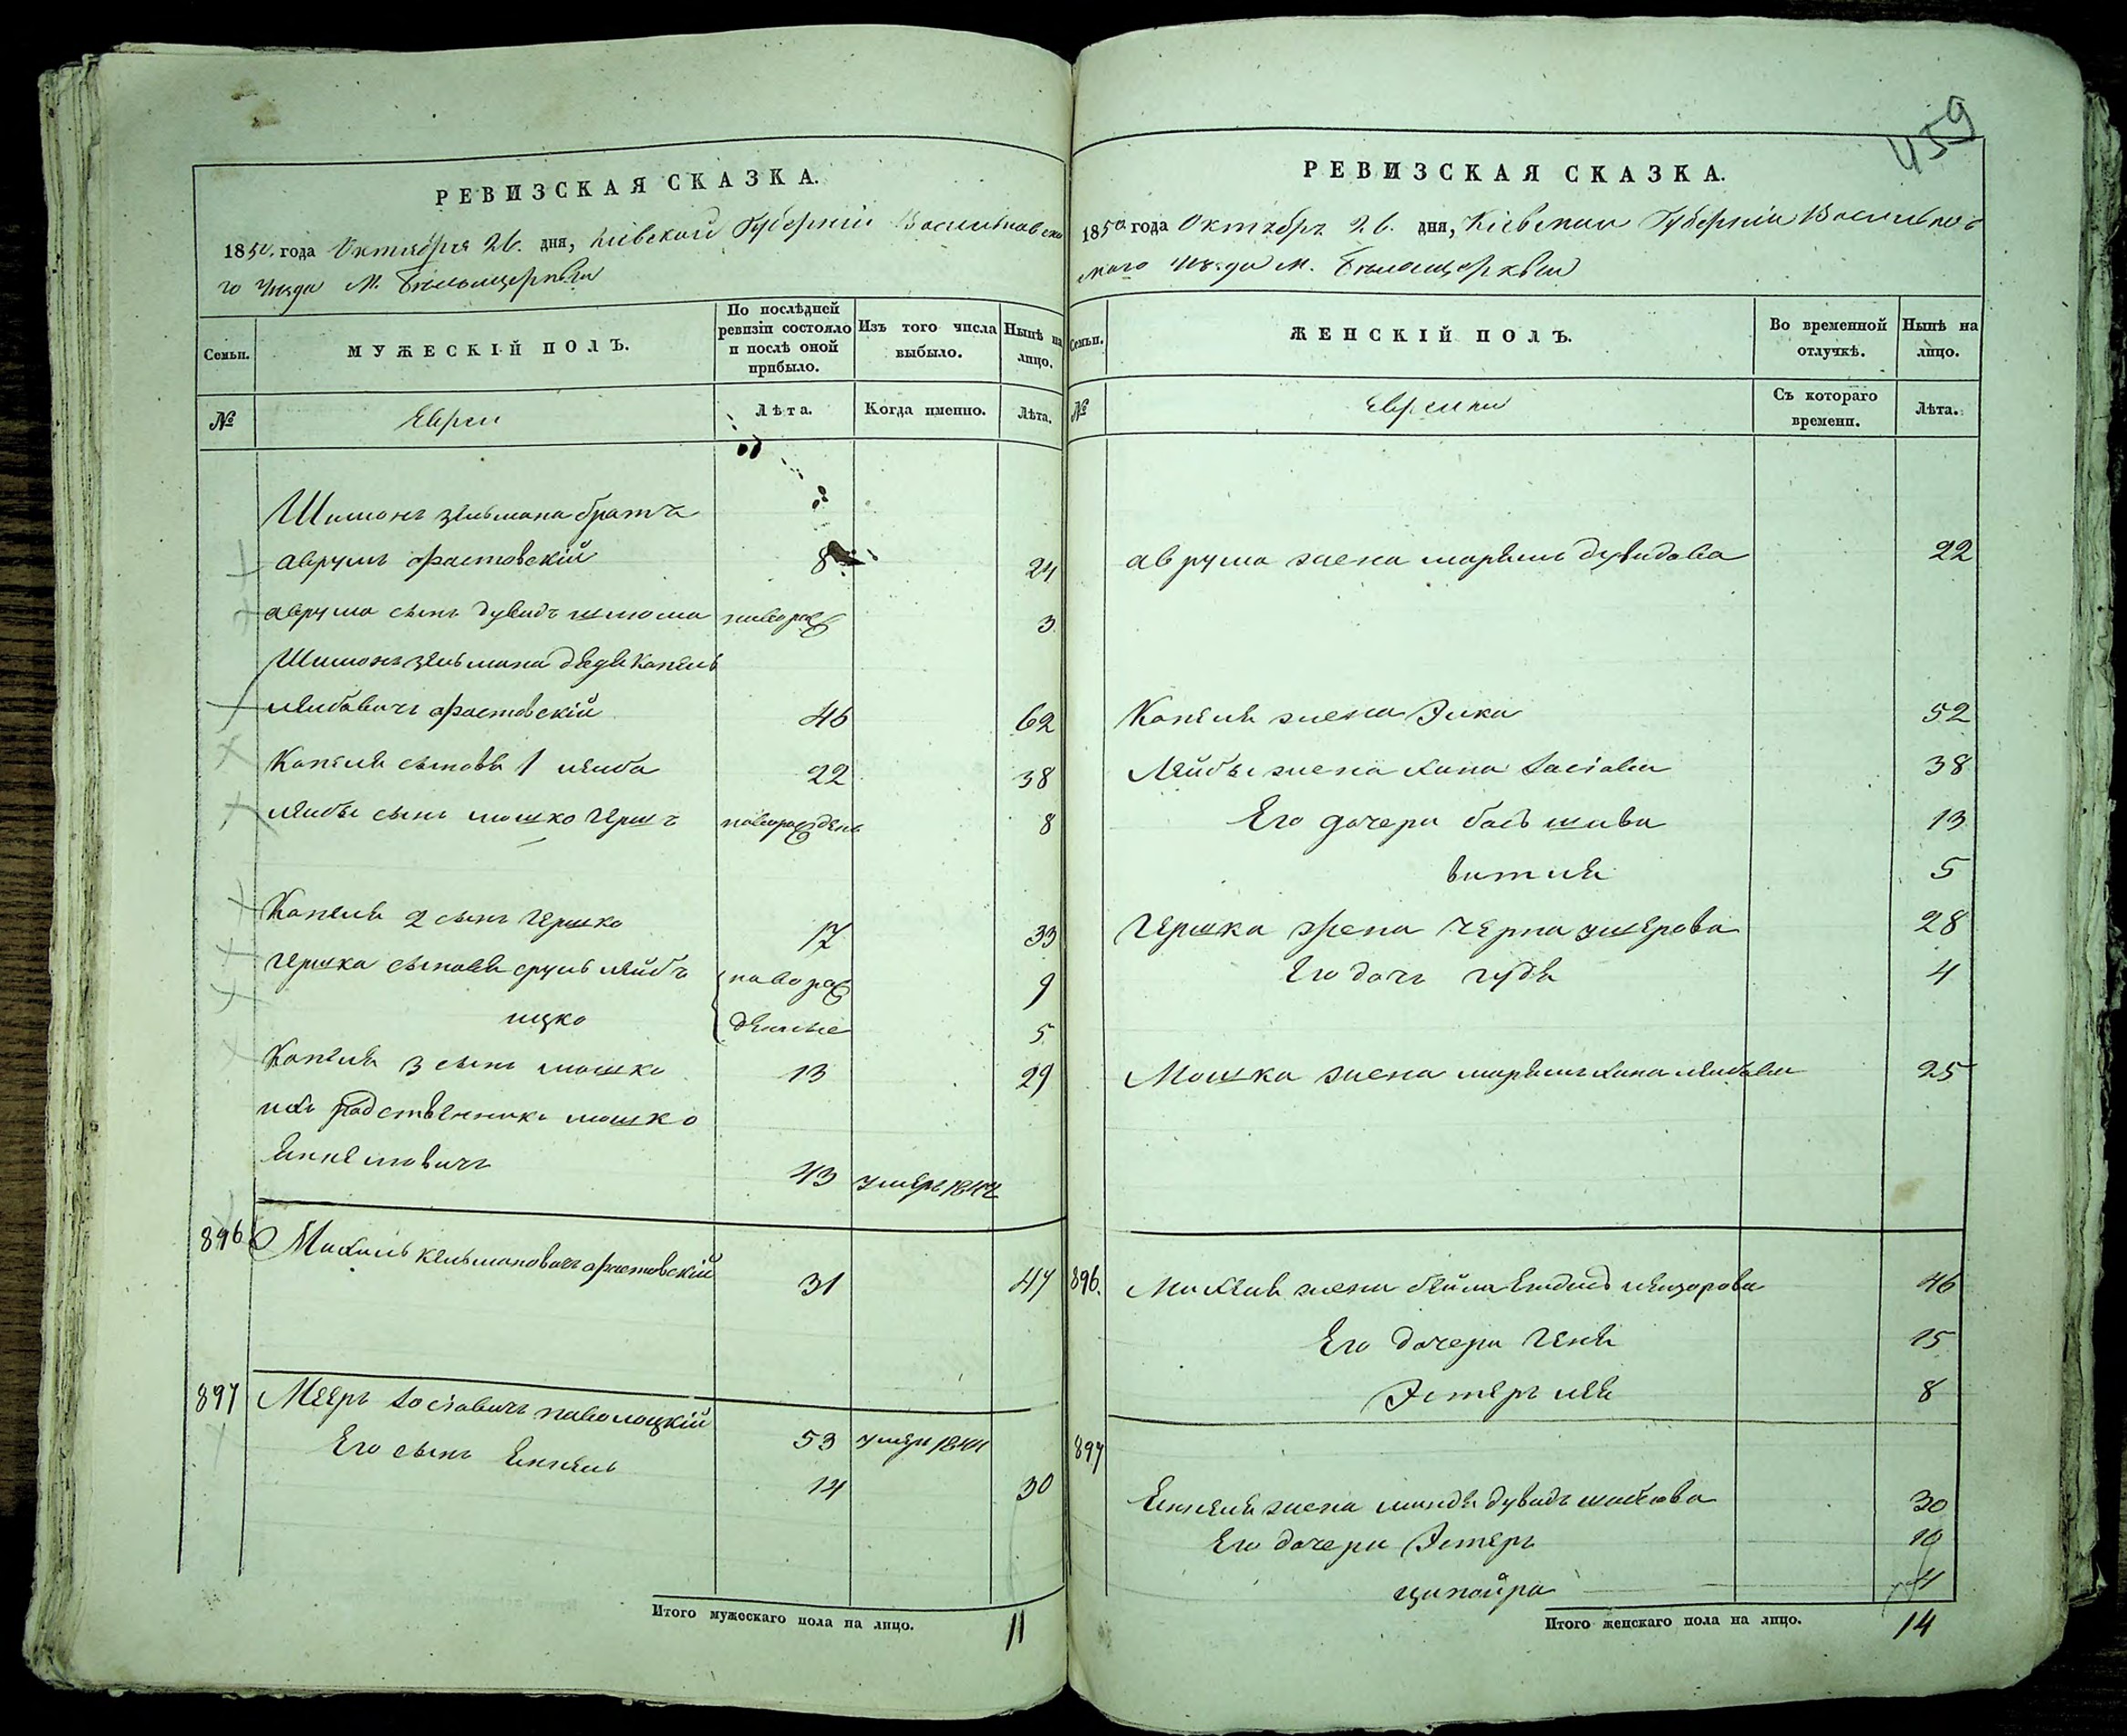 РЕВИЗСКАЯ СКАЗКА.
1850. года Октября 26. дня, Кіевской Губерніи Васильковска
го уѣзда М. Бѣлоцеркви
Семьи.
МУЖЕСКІЙ ПОЛЪ.
По послѣдней ревизіи состояло и послѣ оной прибыло.
Изъ того числа выбыло.
Нынѣ на лицо.
№
Евреи
Лѣта.
Когда именно.
Лѣта.
Шимонъ зельмана братъ
аврумъ фастовскій 8 24
аврума сынъ дувидъ шлома новорож 3
Шимонъ зельмана дядя Копель
лейбовичъ фастовскій 46 62
Копеля сыновя 1 лейба 22 38
лейбы сынъ мошко гершъ новорожденъ 8
Копеля 2 сынъ гершко 17 33
гершка сыновя сруль лейбъ новорож 9
ицко денные 5
Копеля 3 сынъ мошко 13 29
ихъ родственникъ мошко
Янкелювичъ 43 умеръ 1847
896 Михель кельмановичъ фастовскій 31 47
897 Мееръ Іосіовичъ паволоцкій 53 умеръ 1844
Его сынъ Янкель 14 30
Итого мужескаго пола на лицо. 11
459
РЕВИЗСКАЯ СКАЗКА.
1850 года Октября 26. дня, Кіевской Губерніи Васильков
скаго уѣзда М. Бѣлоцеркви
Семьи.
ЖЕНСКІЙ ПОЛЪ.
Во временной отлучкѣ.
Нынѣ на лицо.
№
Еврейки
Съ котораго времени.
Лѣта.
аврума жена марьямъ дувидова 22
Копеля жена Элка 52
Лейбы жена хана Іосіова 38
Его дочери бась шива 13
витля 5
гершка жена черна ушерова 28
Его дочь гудя 4
Мошка жена марьямъ хана лейбова 25
896. Михеля жена бейла лейзорова 46
Его дочери геня 15
Эстеръ лея 8
897
Янкеля жена миндя дувидъ 30
Его дочери Эстеръ 10
ципойра 4
Итого женскаго пола на лицо. 14